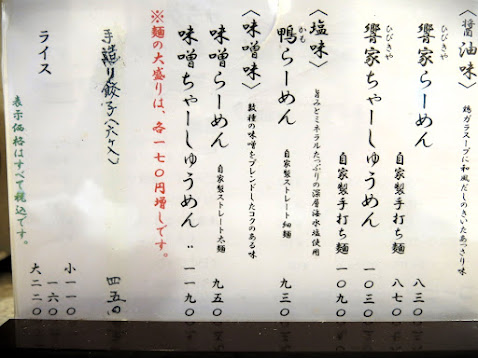 〈醤油味〉 鶏ガラスープに和風だしのきいたあっさり味
ひびきや
響家らーめん 八三〇
自家製手打ち麺 八七〇
ひびきや
響家ちゃーしゅうめん 一〇三〇
自家製手打ち麺 一〇九〇
〈塩味〉 旨みとミネラルたっぷりの深層海水塩使用
かも
鴨らーめん 自家製ストレート細麺 九三〇
〈味噌味〉 数種の味噌をブレンドしたコクのある味
味噌らーめん 自家製ストレート太麺 九五〇
味噌ちゃーしゅうめん ‥ 一一九〇
※麺の大盛りは、各一七〇円増しです。
手造り餃子(六ヶ入) 四五〇
ライス 小一一〇
一六〇
大二二〇
表示価格はすべて税込です。